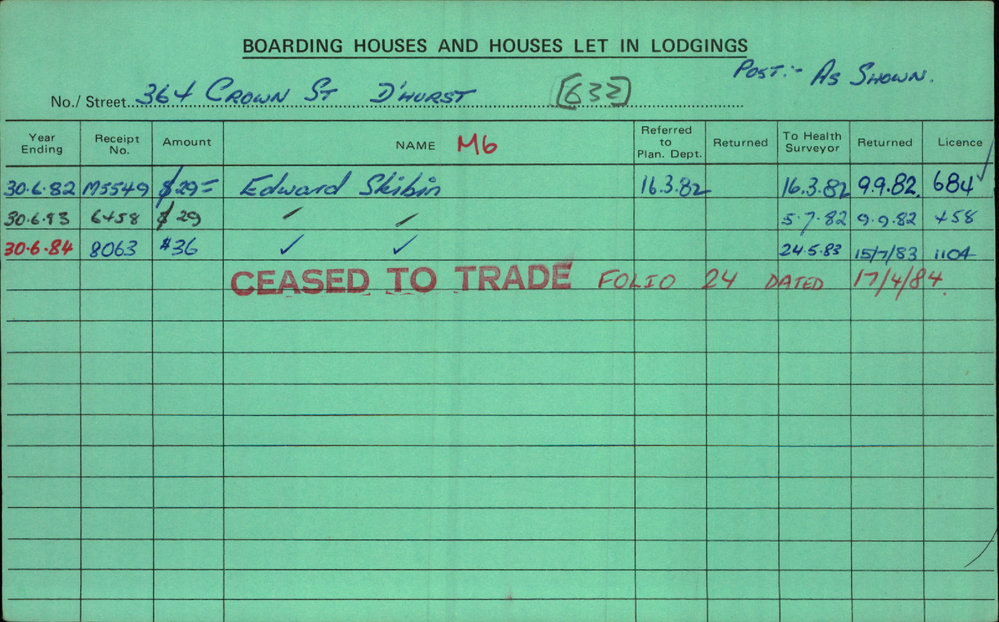 BOARDING HOUSES AND HOUSES LET IN LODGINGS
POST:- AS SHOWN.
No./ Street 364 CROWN ST D'HURST [632]
Year Ending Receipt No. Amount NAME M6 Referred to Plan. Dept. Returned To Health Surveyor Returned Licence
30.6.82 M5549 $29= Edward Skibin 16.3.82 16.3.82 9.9.82 684 ✓
30.6.83 6458 $29 5.7.82 9.9.82 458
30.6.84 8063 $36 ✓ ✓ 24.5.83 15/7/83 1104
CEASED TO TRADE FOLIO 24 DATED 17/4/84.